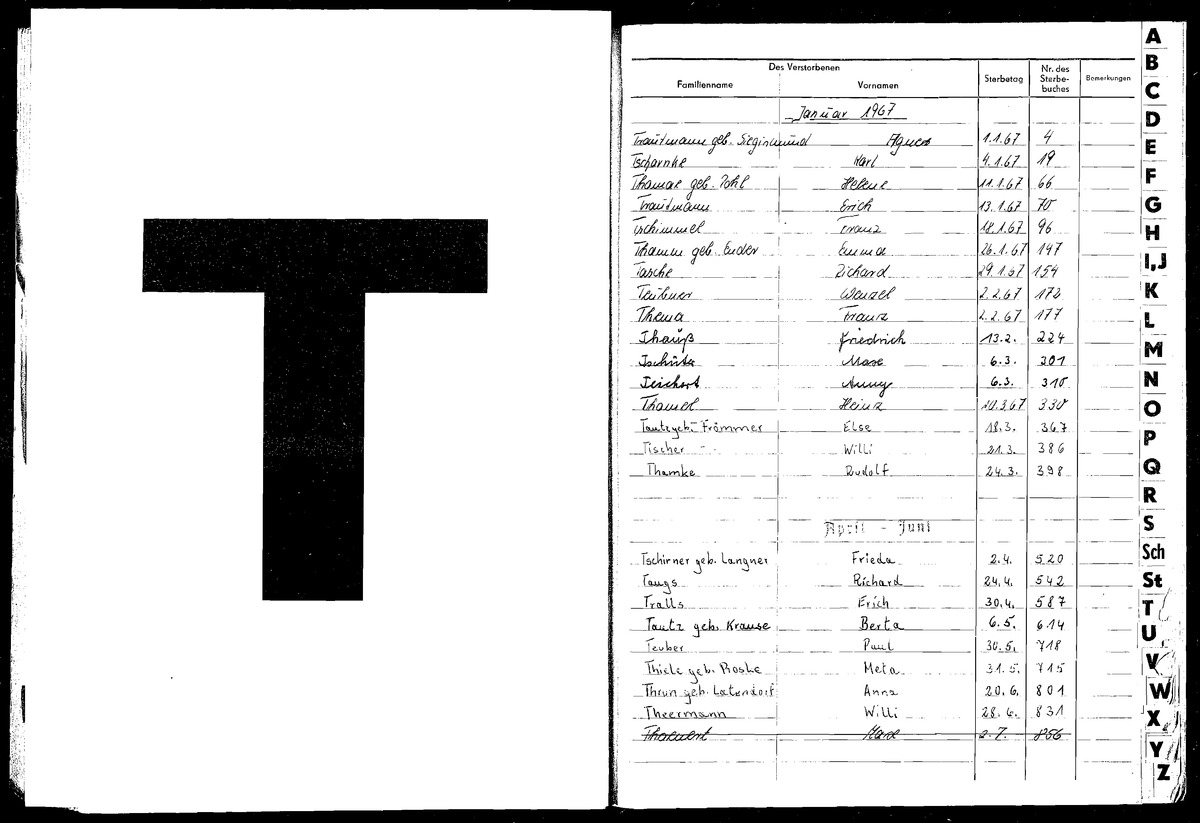 T
Des Verstorbenen
Familienname Vornamen Sterbetag Nr. des Sterbe- buches Bemerkungen
Januar 1967
Trautmann geb. Siegismund Agnes 1.1.67 4
Tscharnke Karl 4.1.67 19
geb. Pohl Helene 11.1.67 66
Trautmann Erich 13.1.67 70
Tschimmel Franz 18.1.67 96
Thamm geb. Ender Emma 26.1.67 147
Tasche Richard 29.1.67 154
Teubner Wenzel 2.2.67
Thema Franz 2.2.67 177
Thauß Friedrich 13.2. 224
6.3. 301
Teichert 6.3. 310
Heinz 330
Tautz geb. Frömmer Else 18.3. 367
Tischer Willi 21.3. 386
Thamke Rudolf 24.3. 398
April - Juni
Tschirner geb. Langner Frieda 2.4. 520
Taugs Richard 24.4. 542
Tralls Erich 30.4. 587
Tautz geb. Krause Berta 6.5. 614
Teuber Paul 30.5. 718
Thiele geb. Roske Meta 31.5. 715
Thrun geb. Latzndorf Anna 20.6. 801
Theermann Willi 28.6. 831
2.7. 856
A
B
C
D
E
F
G
H
I,J
K
L
M
N
O
P
Q
R
S
Sch
St
T
U
V
W
X
Y
Z